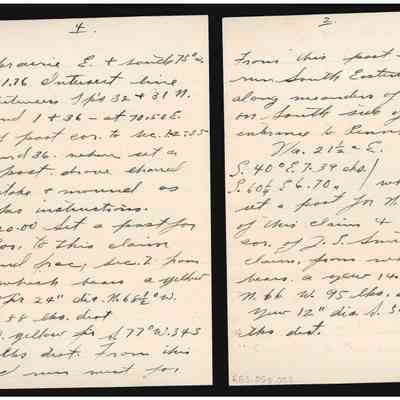 4.
prairie E. & south 75° a
1.76 Intersect line
between Tp's 32 & 31 N.
and 1 & 36 - at 70.50 E.
of post cor. to sec. 35
and 36. where set a
post, drove charred
stake & mound as
per instructions.
20.00 set a post for
Cor. to this claim
and frac, sec. 2, from
which bears a yellow
Pr 24" dia. N. 68½° W.
88 lks. dist
yellow pr S 77° W. 343
lks dist. From this
run west for
3.
From this post
run South Easterly
along meanders of
on South side of
entrance to
Va. 21½° E.
S. 40° E. 7.39 chs.
S. 60½ E 6.70 "
set a post for N
of this claim &
cor. of J. S.
claim, from
bears a yew 14
N. 66 W. 95 lks.
Yew 12" dia. S. 3
lks dist.